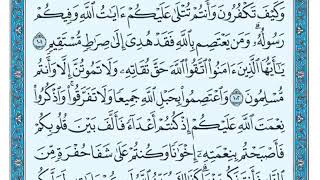 وَكَيْفَ تَكْفُرُونَ وَأَنتُمْ تُتْلَىٰ عَلَيْكُمْ ءَايَٰتُ ٱللَّهِ وَفِيكُمْ
رَسُولُهُۥ وَمَن يَعْتَصِم بِٱللَّهِ فَقَدْ هُدِىَ إِلَىٰ صِرَٰطٍ مُّسْتَقِيمٍ
١٠١ يَٰٓأَيُّهَا ٱلَّذِينَ ءَامَنُوا۟ ٱتَّقُوا۟ ٱللَّهَ حَقَّ تُقَاتِهِۦ وَلَا تَمُوتُنَّ إِلَّا وَأَنتُم
مُّسْلِمُونَ ١٠٢ وَٱعْتَصِمُوا۟ بِحَبْلِ ٱللَّهِ جَمِيعًا وَلَا تَفَرَّقُوا۟ وَٱذْكُرُوا۟
نِعْمَتَ ٱللَّهِ عَلَيْكُمْ إِذْ كُنتُمْ أَعْدَآءً فَأَلَّفَ بَيْنَ قُلُوبِكُمْ
فَأَصْبَحْتُم بِنِعْمَتِهِۦٓ إِخْوَٰنًا وَكُنتُمْ عَلَىٰ شَفَا حُفْرَةٍ مِّنَ